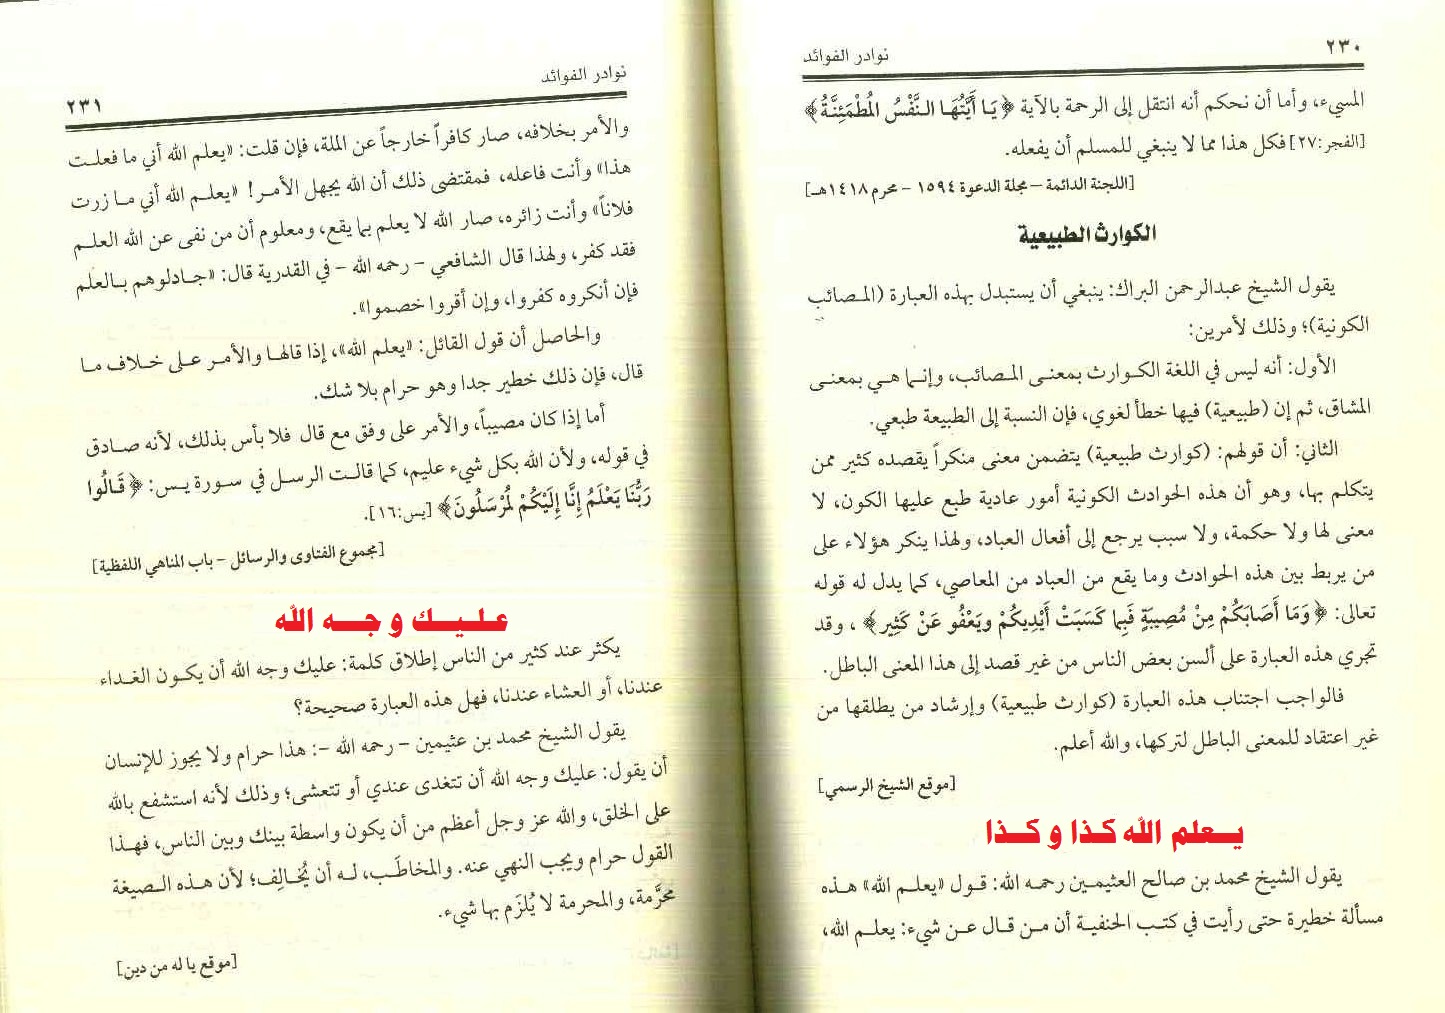 ٢٣٠
نوادر الفوائد
المسيء، وأما أن نحكم أنه انتقل إلى الرحمة بالآية ﴿يَا أَيَّتُهَا النَّفْسُ المُطْمَئِنَّةُ﴾
[الفجر:٢٧] فكل هذا مما لا ينبغي للمسلم أن يفعله.
[اللجنة الدائمة – مجلة الدعوة ١٥٩٤ – محرم ١٤١٨هـ]
الكوارث الطبيعية
يقول الشيخ عبدالرحمن البراك: ينبغي أن يستبدل بهذه العبارة (المصائب
الكونية)؛ وذلك لأمرين:
الأول: أنه ليس في اللغة الكوارث بمعنى المصائب، وإنما هي بمعنى
المشاق، ثم إن (طبيعية) فيها خطأ لغوي، فإن النسبة إلى الطبيعة طبعي.
الثاني: أن قولهم: (كوارث طبيعية) يتضمن معنى منكراً يقصده كثير ممن
يتكلم بها، وهو أن هذه الحوادث الكونية أمور عادية طبع عليها الكون، لا
معنى لها ولا حكمة، ولا سبب يرجع إلى أفعال العباد، ولهذا ينكر هؤلاء على
من يربط بين هذه الحوادث وما يقع من العباد من المعاصي، كما يدل له قوله
تعالى: ﴿وَمَا أَصَابَكُمْ مِنْ مُصِيبَةٍ فَبِما كَسَبَتْ أَيْدِيكُمْ ويَعْفُو عَنْ كَثِيرٍ﴾ ، وقد
تجري هذه العبارة على ألسن بعض الناس من غير قصد إلى هذا المعنى الباطل.
فالواجب اجتناب هذه العبارة (كوارث طبيعية) وإرشاد من يطلقها من
غير اعتقاد للمعنى الباطل لتركها، والله أعلم.
[موقع الشيخ الرسمي]
يعلم الله كذا وكذا
يقول الشيخ محمد بن صالح العثيمين رحمه الله: قول «يعلم الله» هذه
مسألة خطيرة حتى رأيت في كتب الحنفية أن من قال عن شيء: يعلم الله،
نوادر الفوائد
٢٣١
والأمر بخلافه، صار كافراً خارجاً عن الملة، فإن قلت: «يعلم الله أني ما فعلت
هذا» وأنت فاعله، فمقتضى ذلك أن الله يجهل الأمر! «يعلم الله أني ما زرت
فلاناً» وأنت زائره، صار الله لا يعلم بما يقع، ومعلوم أن من نفى عن الله العلم
فقد كفر، ولهذا قال الشافعي – رحمه الله – في القدرية قال: «جادلوهم بالعلم
فإن أنكروه كفروا، وإن أقروا خصموا».
والحاصل أن قول القائل: «يعلم الله»، إذا قالها والأمر على خلاف ما
قال، فإن ذلك خطير جدا وهو حرام بلا شك.
أما إذا كان مصيباً، والأمر على وفق مع قال فلا بأس بذلك، لأنه صادق
في قوله، ولأن الله بكل شيء عليم، كما قالت الرسل في سورة يس: ﴿قَالُوا
رَبُّنَا يَعْلَمُ إِنَّا إِلَيْكُمْ لَمُرْسَلُونَ﴾ [يس:١٦].
[مجموع الفتاوى والرسائل – باب المناهي اللفظية]
عليك وجه الله
يكثر عند كثير من الناس إطلاق كلمة: عليك وجه الله أن يكون الغداء
عندنا، أو العشاء عندنا، فهل هذه العبارة صحيحة؟
يقول الشيخ محمد بن عثيمين – رحمه الله –: هذا حرام ولا يجوز للإنسان
أن يقول: عليك وجه الله أن تتغدى عندي أو تتعشى؛ وذلك لأنه استشفع بالله
على الخلق، والله عز وجل أعظم من أن يكون واسطة بينك وبين الناس، فهذا
القول حرام ويجب النهي عنه. والمخاطَب، له أن يُخالِف؛ لأن هذه الصيغة
محرَّمة، والمحرمة لا يُلزَم بها شيء.
[موقع يا له من دين]